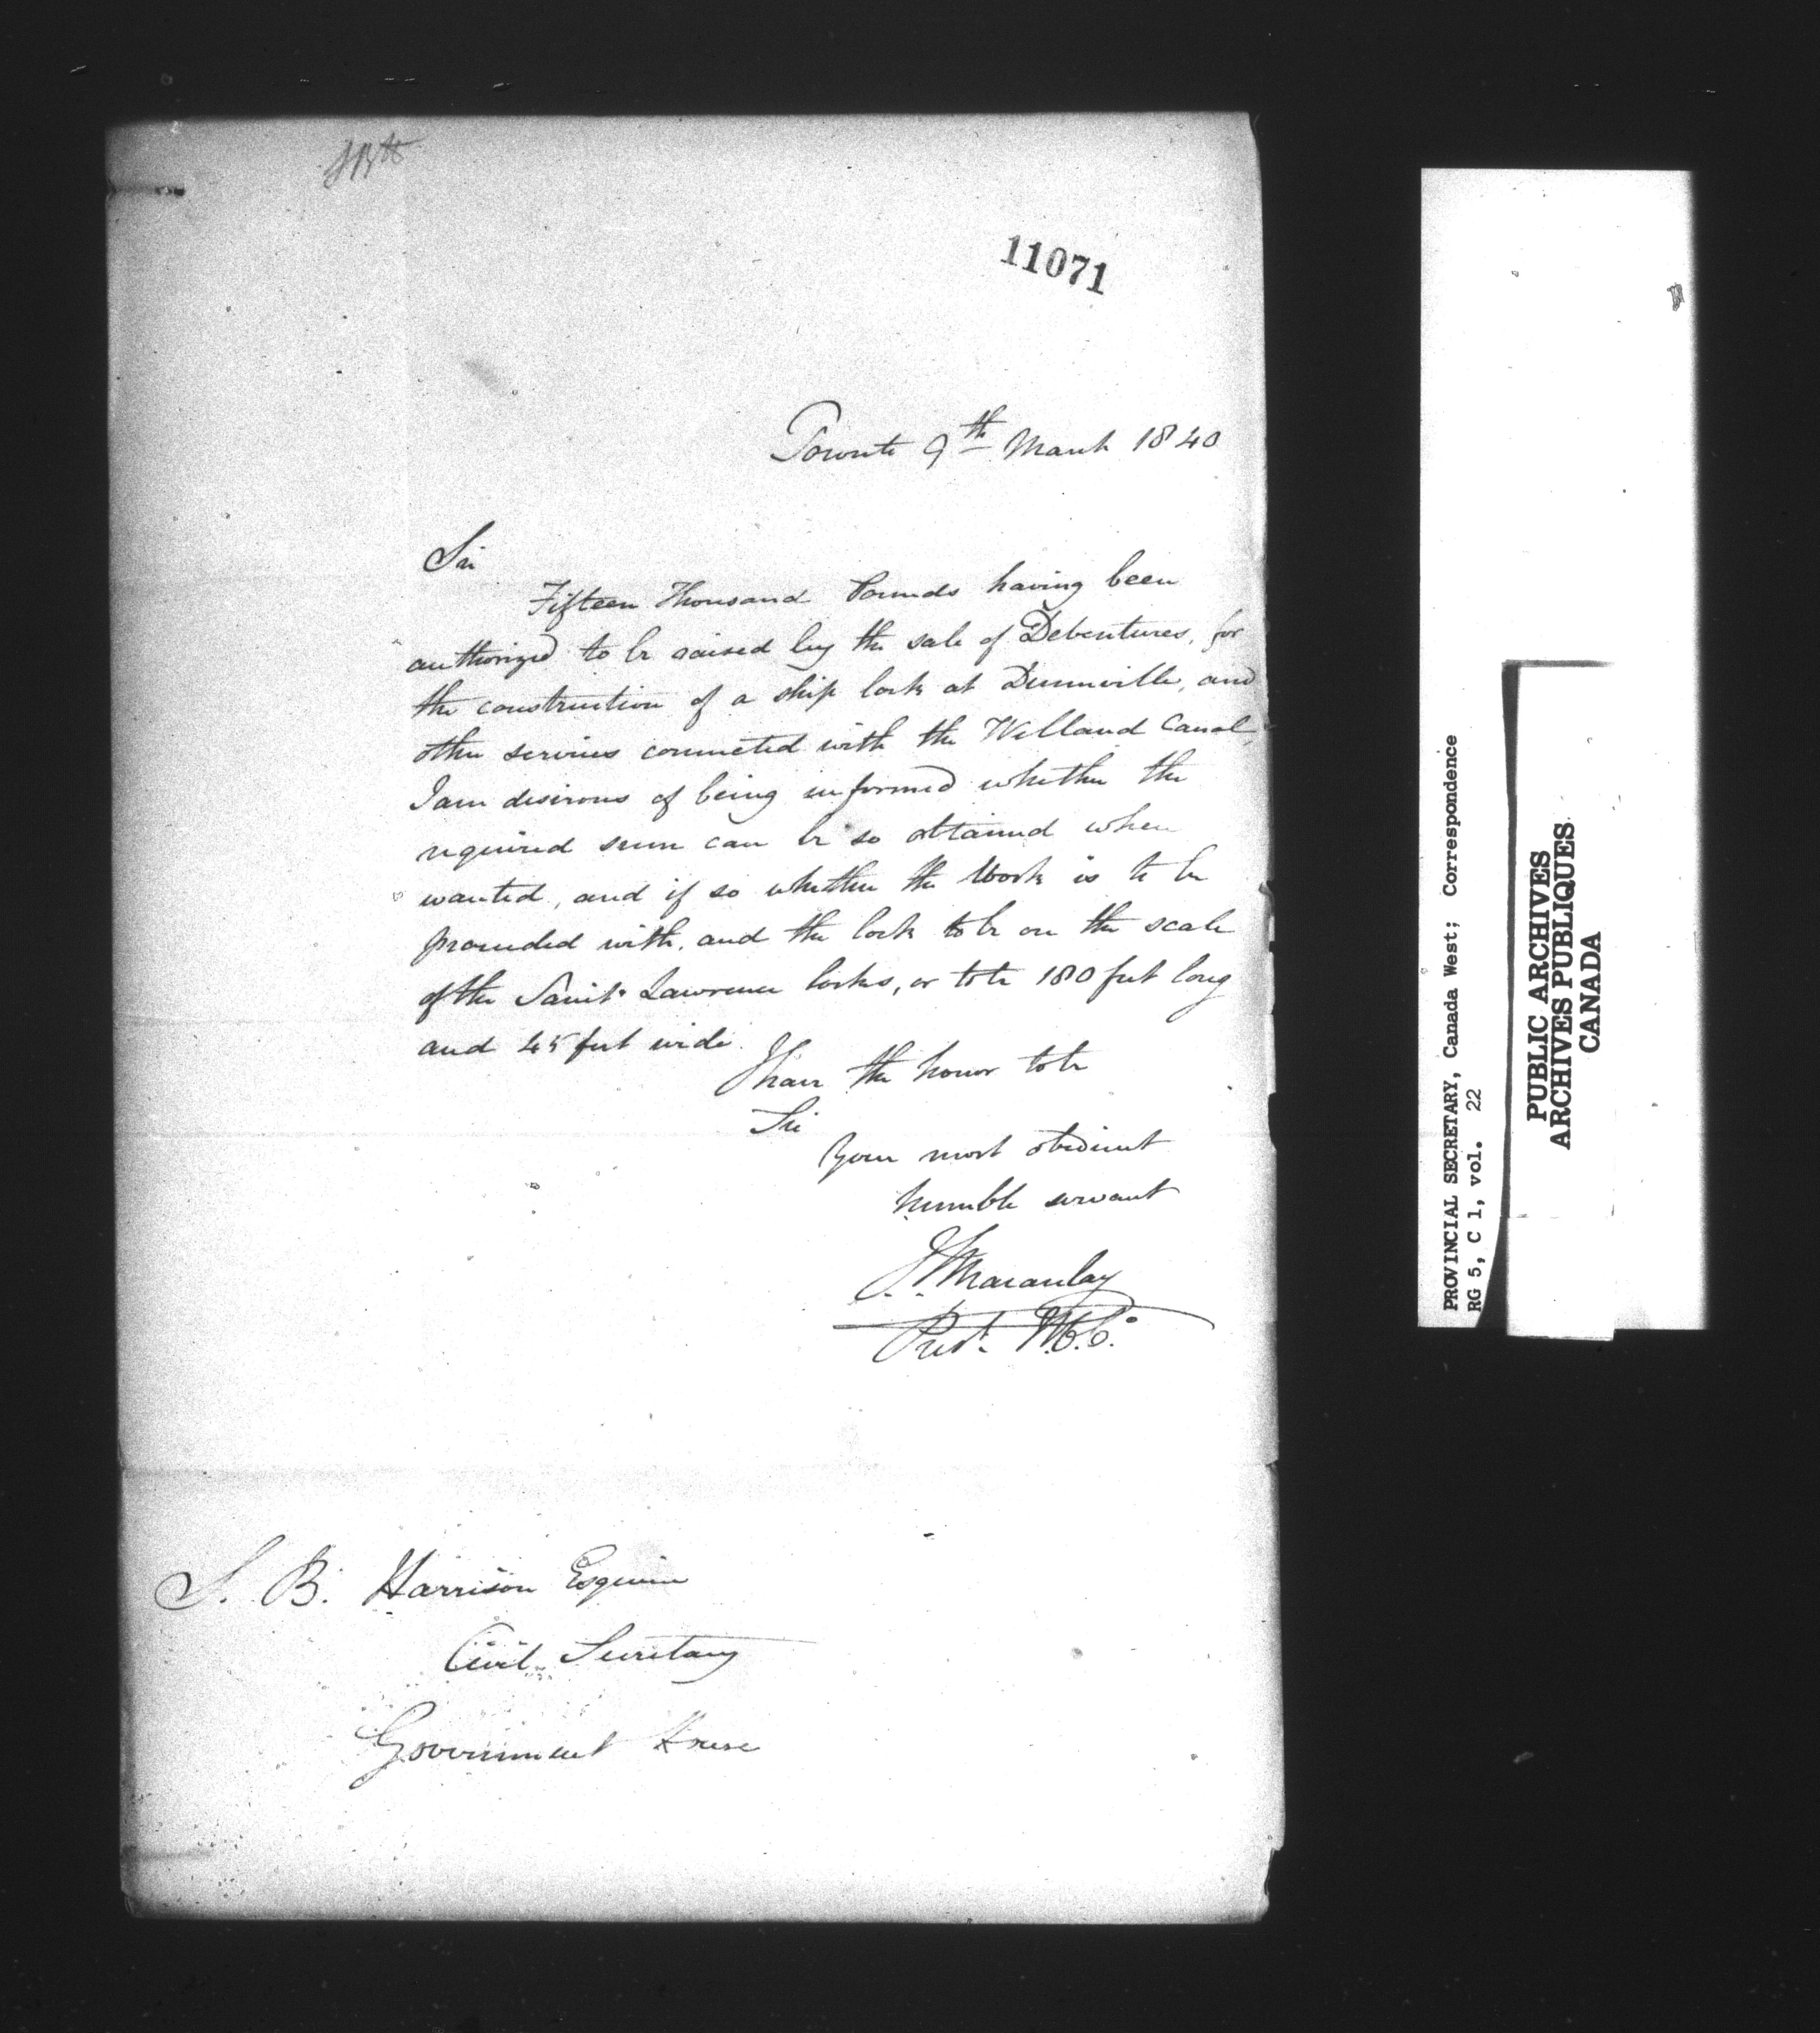 11071
Toronto 9th March 1840
Sir
Fifteen Thousand Pounds having been
authorized to be raised by the sale of Debentures, for
the construction of a ship lock at Dunnville, and
other services connected with the Welland Canal,
I am desirous of being informed whether the
required sum can be so obtained when
wanted, and if so whether the Work is to be
proceeded with, and the lock to be on the scale
of the Saint Lawrence locks, or to be 180 feet long
and 45 feet wide.
I have the honor to be
Sir
Your most obedient
humble servant
J. Macaulay
Prest. W.C.Co.
S. B. Harrison Esquire
Civil Secretary
Government House
PROVINCIAL SECRETARY, Canada West; Correspondence
RG 5, C 1, vol. 22
PUBLIC ARCHIVES
ARCHIVES PUBLIQUES
CANADA